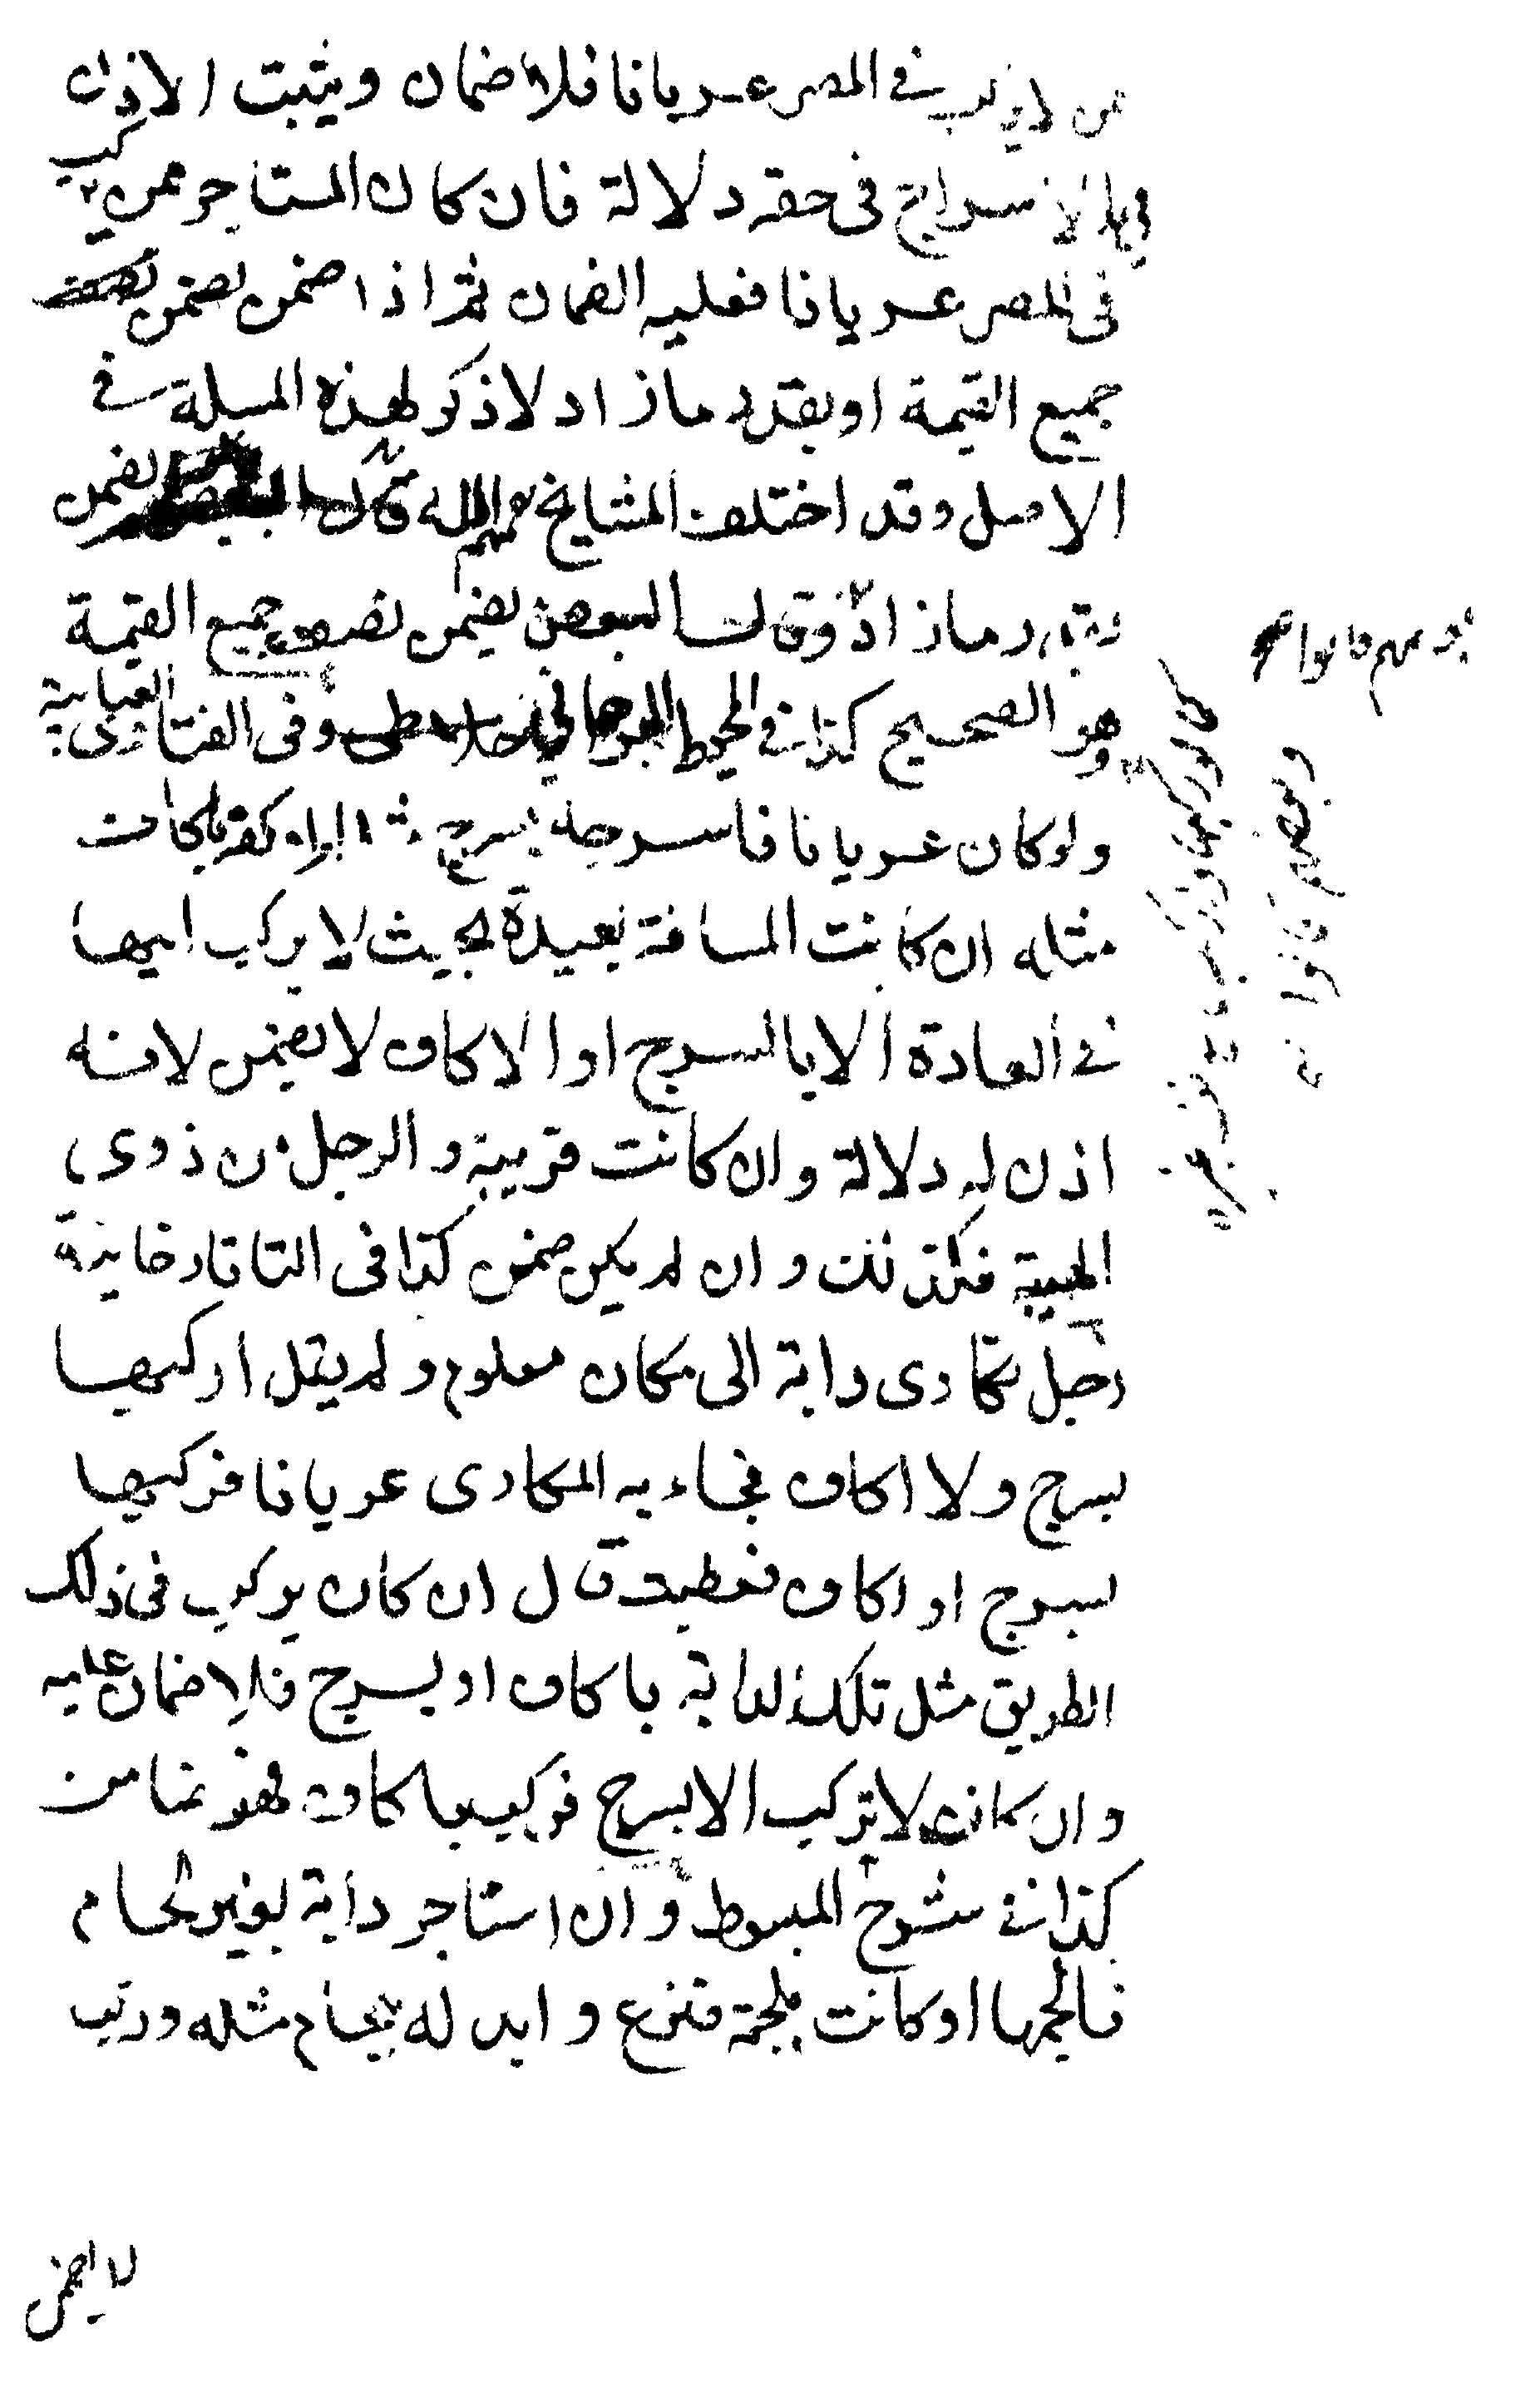 من لا يركب في المصر عريانا فلا ضمان ويثبت الاذن
في الاسراج في حقه دلالة فان كان المستاجر ممن يركب
في المصر عريانا فعليه الضمان ثم اذا ضمن يضمن
جميع القيمة او بقدر ما زاد لا ذكر لهذه المسلة في
الاصل وقد اختلف المشايخ يضمن
بقدر ما زاد وقال البعض يضمن جميع القيمة
وهو الصحيح كذا في المحيط وفي الفتاوى العتابية
ولو كان عريانا فاسرجه بسرج
مثله ان كانت المسافة بعيدة بحيث لا يركب اليها
في العادة الا بالسرج او الاكاف لا يضمن لانه
اذن له دلالة وان كانت قريبة والرجل من ذوي
الهيبة فكذلك وان لم يكن ضمن كذا في التاتارخانية
رجل تكارى دابة الى مكان معلوم ولم يقل اركبها
بسرج ولا اكاف فجاء به المكارى عريانا فركبها
بسرج او اكاف فعطبت قال ان كان يركب في ذلك
الطريق مثل تلك الدابة باكاف او بسرج فلا ضمان عليه
وان كانت لا تركب الا بسرج فركب باكاف فهو ضامن
كذا في شرح المبسوط وان استاجر دابة بغير لجام
فالجمها او كانت ملجمة فنزع وابدله بلجام مثله وركب
بعضهم قالوا
وبعضهم قالوا
لا يضمن